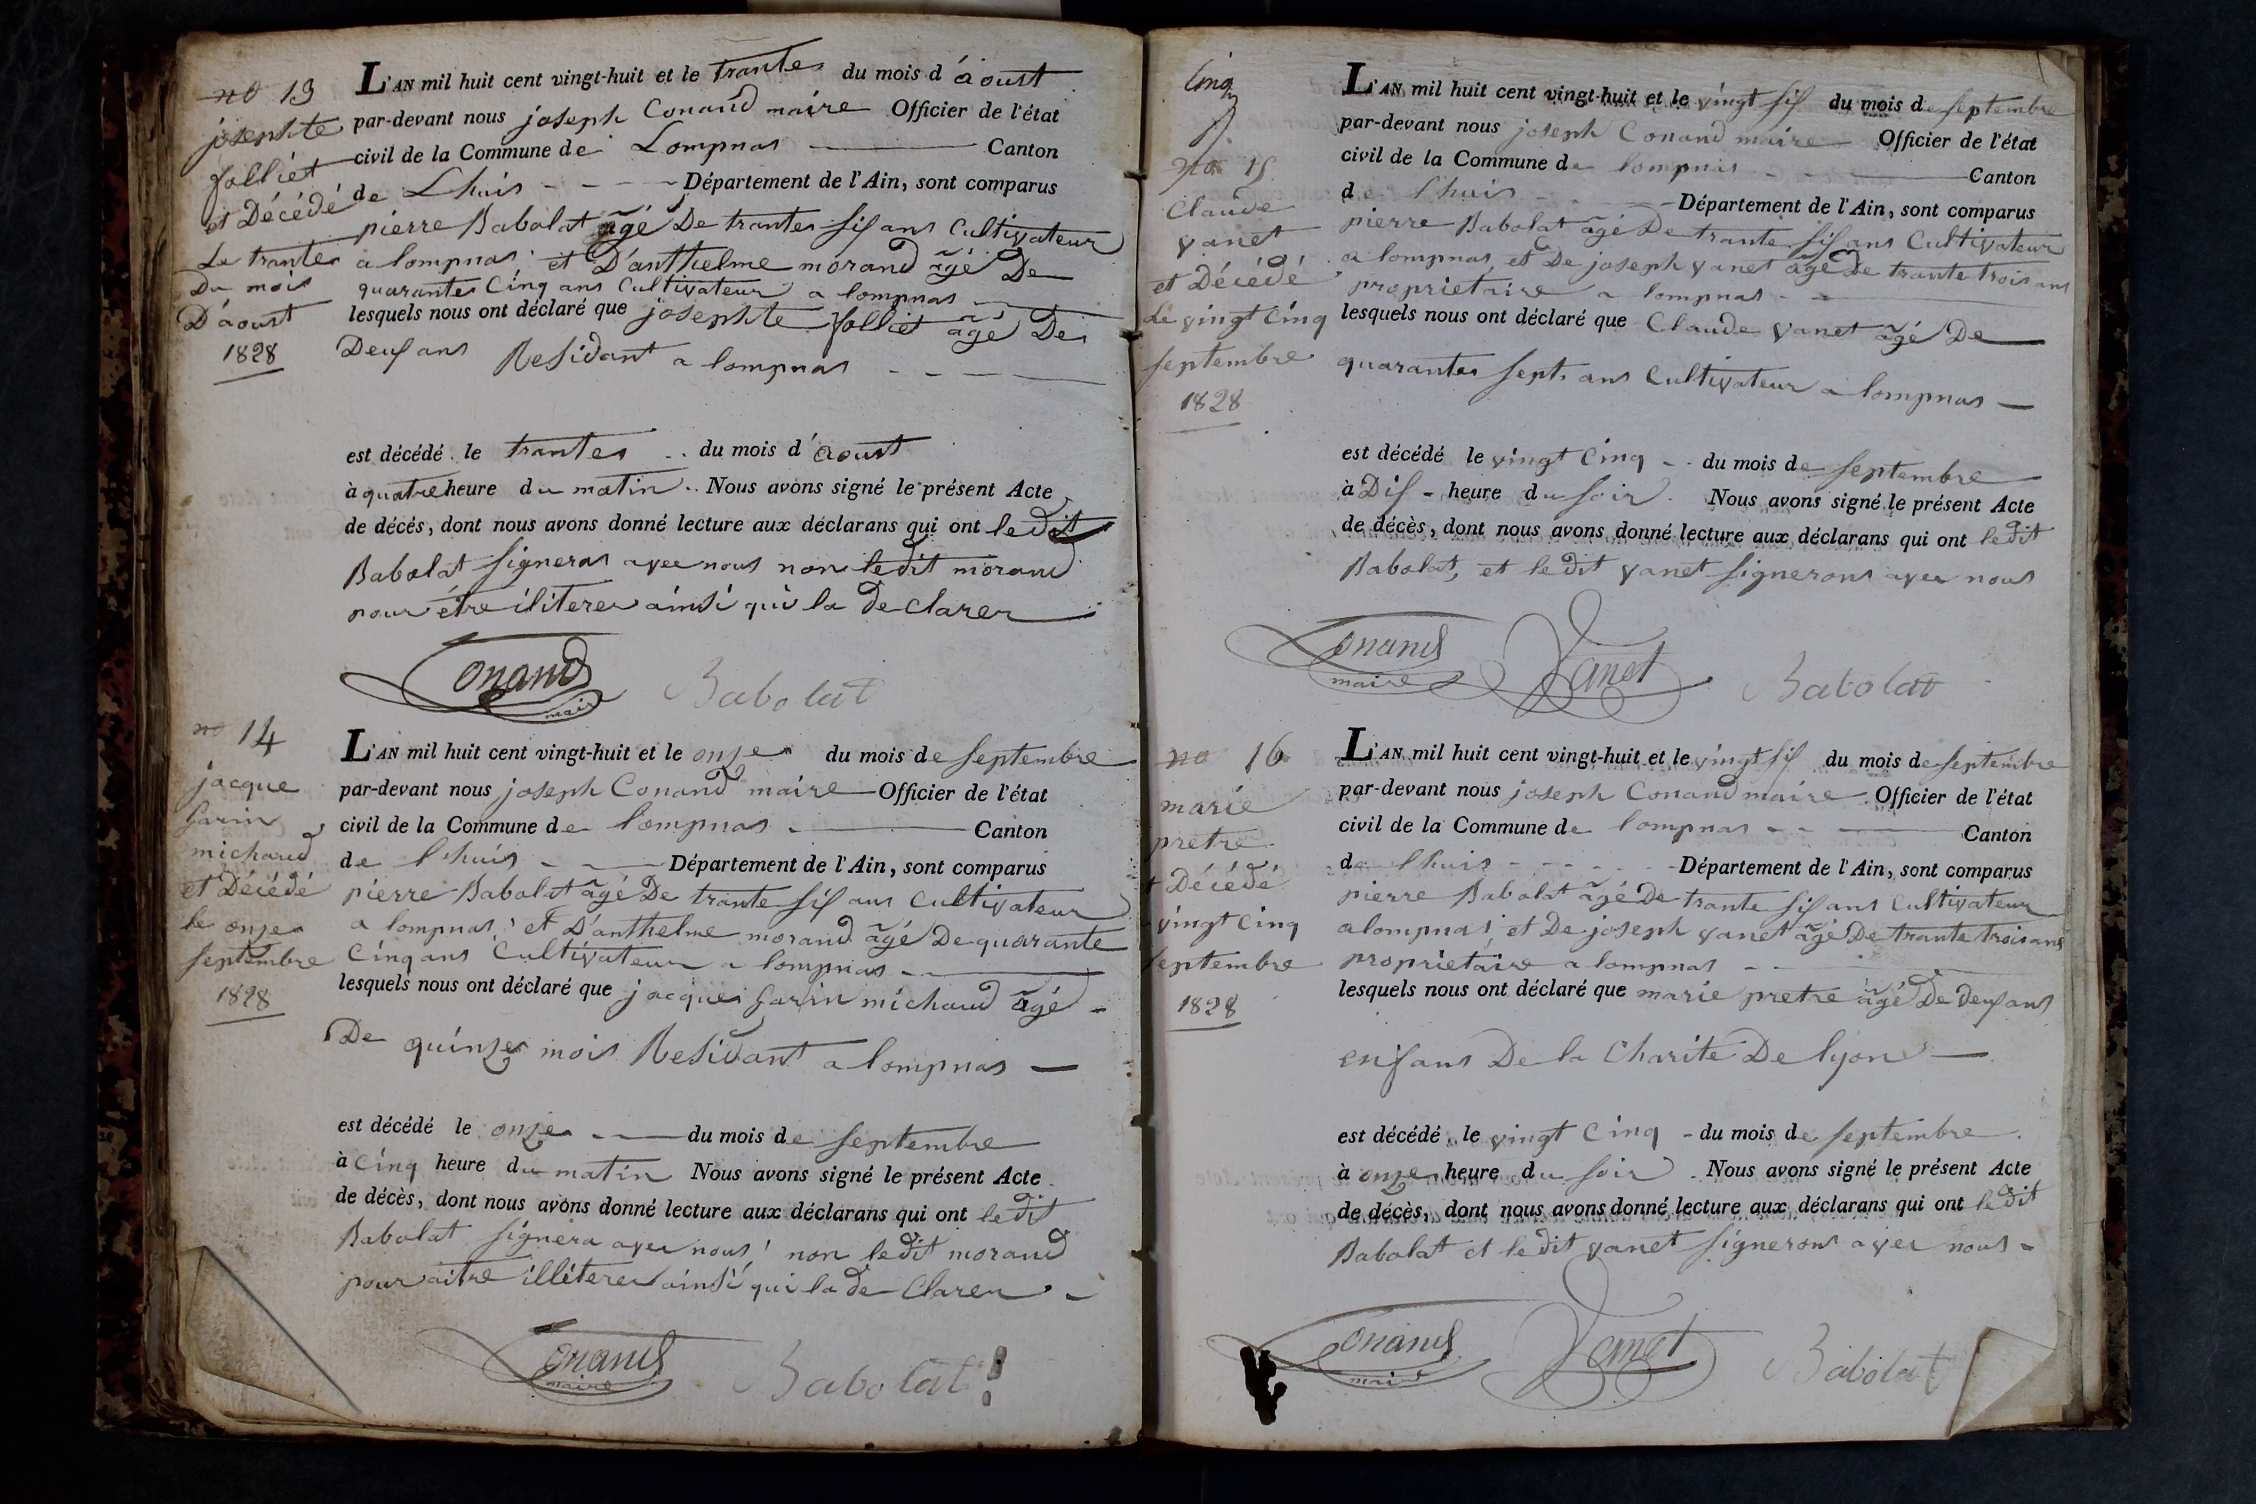 no 13
josephte
jolliet
et Décédé
Le trantes
Du mois
D'aoust
1828
L'AN mil huit cent vingt-huit et le trantes du mois d'aoust
par-devant nous joseph Conand maire Officier de l'état
civil de la Commune de Lompnas Canton
de Lhuis Département de l'Ain, sont comparus
pierre Babolat âgé De trantes sis ans Cultivateur
a lompnas et D'anthelme morand âgé De
quarantes Cinq ans Cultivateur a lompnas
lesquels nous ont déclaré que josephte jolliet âgé De
Deus ans Residant a lompnas
est décédé le trantes du mois d'aoust
à quatre heure du matin. Nous avons signé le présent Acte
de décés, dont nous avons donné lecture aux déclarans qui ont ledit
Babolat signeras avec nous non ledit morand
pour étre iliterer ainsi qui la De clarer
Conand
maire
Babolat
no 14
jacque
garin
michaud
et Décédé
le onze
septembre
1828
L'AN mil huit cent vingt-huit et le onze du mois de septembre
par-devant nous joseph Conand maire Officier de l'état
civil de la Commune de lompnas Canton
de l'huis Département de l'Ain, sont comparus
pierre Babolat âgé De trante sis ans Cultivateur
a lompnas, et D'anthelme morand âgé De quarante
Cinq ans Cultivateur a lompnas
lesquels nous ont déclaré que jacques garin michaud âgé
De quinze mois Residant a lompnas
est décédé le onze du mois de septembre
à Cinq heure du matin Nous avons signé le présent Acte
de décès, dont nous avons donné lecture aux déclarans qui ont ledit
Babolat signera avec nous, non ledit morand
pour aitre illiterer ainsi qui la de Clarer
Conand
maire
Babolat
Cinq
no 15
Claude
vanet
et Décédé
Le vingt Cinq
septembre
1828
L'AN mil huit cent vingt-huit et le vingt sis du mois de septembre
par-devant nous joseph Conand maire Officier de l'état
civil de la Commune de lompnas Canton
de l'huis Département de l'Ain, sont comparus
pierre Babolat âgé De trante sis ans Cultivateur
a lompnas, et De joseph vanet âgé De trante trois ans
propriétaire a lompnas
lesquels nous ont déclaré que Claude vanet âgé De
quarantes sept ans Cultivateur a lompnas
est décédé le vingt Cinq du mois de septembre
à Dis heure du soir. Nous avons signé le présent Acte
de décès, dont nous avons donné lecture aux déclarans qui ont ledit
Babolat, et ledit vanet signerons avec nous
Conand
maire
Vanet
Babolat
no 16
marie
pretre
et Décédé
vingt Cinq
septembre
1828
L'AN mil huit cent vingt-huit et le vingt sis du mois de septembre
par-devant nous joseph Conand maire Officier de l'état
civil de la Commune de lompnas Canton
de lhuis Département de l'Ain, sont comparus
pierre Babolat âgé De trante sis ans Cultivateur
a lompnas, et De joseph vanet âgé De trante trois ans
propriétaire a lompnas
lesquels nous ont déclaré que marie pretre âgé De deus ans
enfans De la Charité De lyon
est décédé le vingt Cinq du mois de septembre
à onze heure du soir. Nous avons signé le présent Acte
de décès, dont nous avons donné lecture aux déclarans qui ont ledit
Babolat et ledit vanet signerons avec nous
Conand
maire
Vanet
Babolat